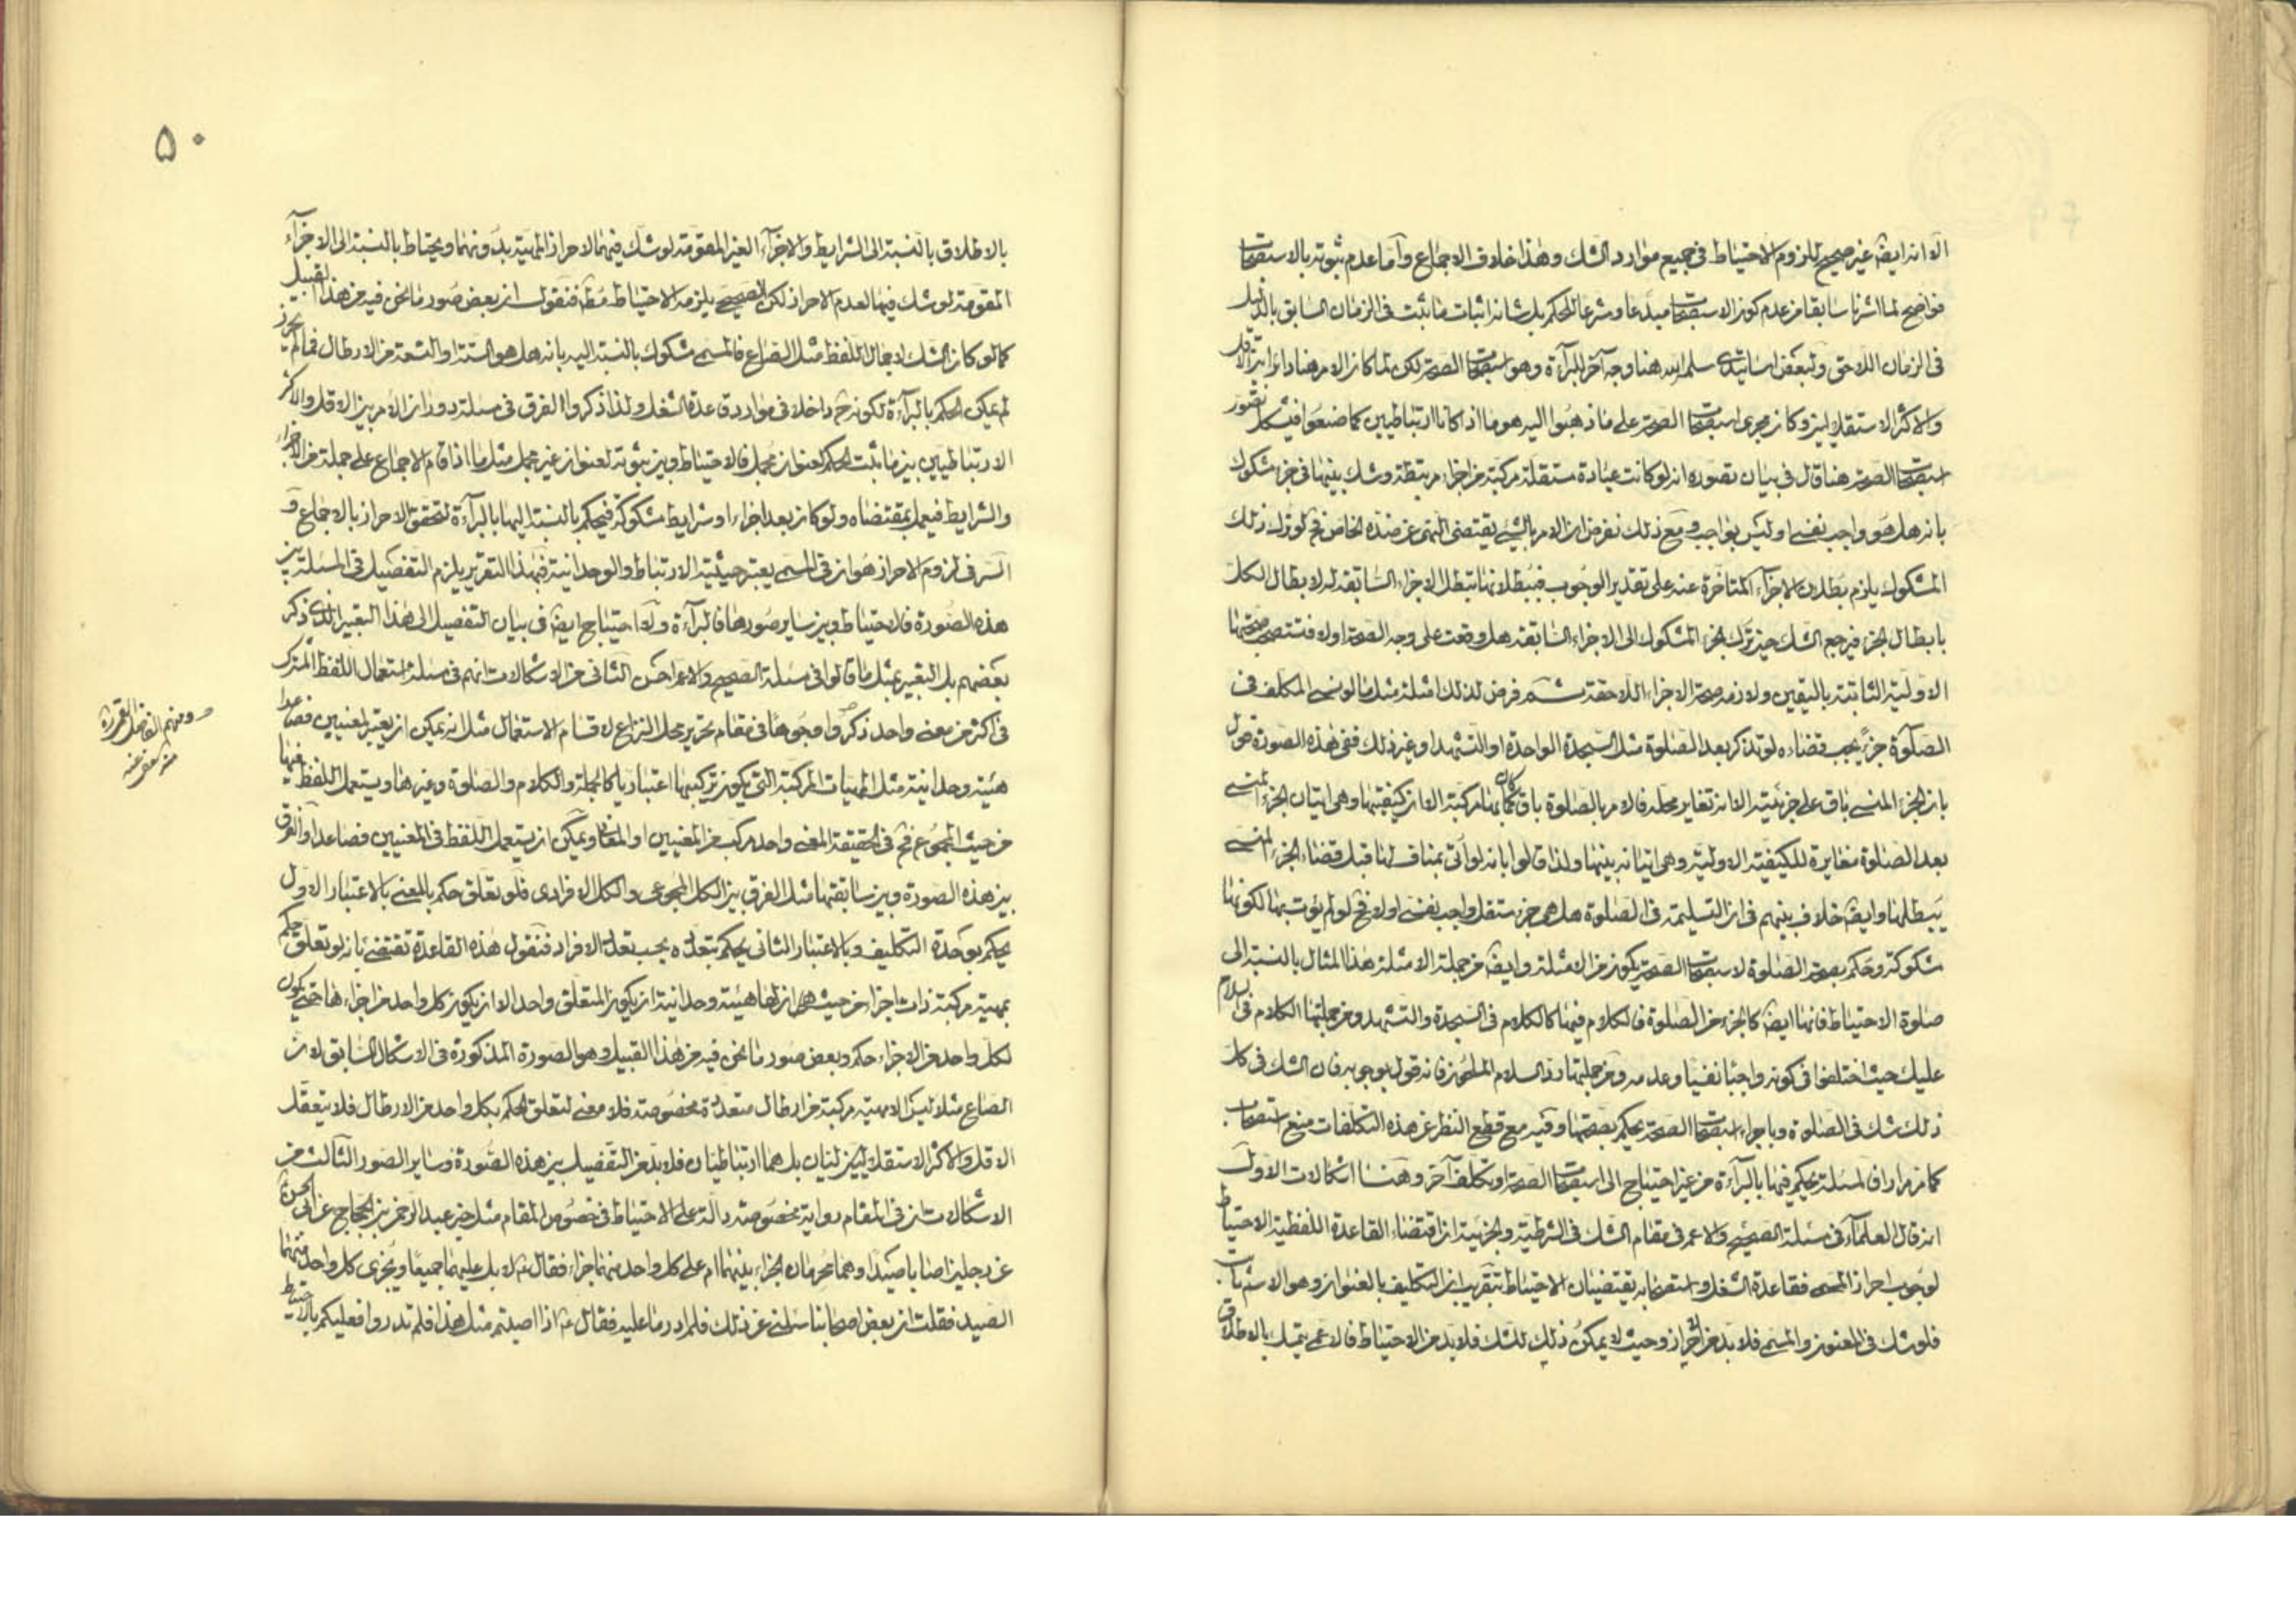 الا انه ايضا غير صحيح للزوم الاحتياط فى جميع موارد الشك وهذا خلاف الاجماع وآما عدم ثبوته بالاستصحاب
فواضح لما اشرنا سابقا من عدم كون الاستصحاب مبدعا ومشرعا للحكم بل شانه اثبات ما ثبت فى الزمان السابق بالدليل
فى الزمان اللاحق ولبعض اساتيدى سلمه الله هنا وجه آخر للبرآءة وهو استصحاب الصحة لكن لما كان الامر هنا دائرا بين الاقل
والاكثر الاستقلاليين وكان مجرى استصحاب الصحة على ما ذهبوا اليه هو ما اذا كانا ارتباطيين كما صنعوا فيشكل تصور
استصحاب الصحة هنا قال فى بيان تصوره انه لو كانت عبادة مستقلة مركبة من اجزاء مرتبطة وشك بينها فى جزء مشكوك
بانه هل هو واجب نفسى او ليس بواجب ومع ذلك نفرض ان الامر بالشئ يقتضى النهى عن ضده الخاص فح لو ترك ذلك
المشكوك يلزم بطلان الاجزآء المتاخرة عنه على تقدير الوجوب فببطلانها تبطل الاجزاء السابقة له لابطال الكل
بابطال الجزء فيرجع الشك حين ترك الجزء المشكوك الى الاجزاء السابقة هل وقعت على وجه الصحة اولا فتستصحب صحتها
الاولية الثابتة باليقين ولازمه صحة الاجزاء اللاحقة ثم فرض لذلك امثلة مثل ما لو نسى المكلف فى
الصلوة جزءً يجب قضاءه لو تذكر بعد الصلوة مثل السجدة الواحدة او التشهد او غير ذلك ففى هذه الصورة نقول
بان الجزء المنسى باق على جزئيته الا انه تغاير محله فالامر بالصلوة باق بحاله مركبة الا ان كيفيتها وهى اتيان الجزء المنسى
بعد الصلوة مغايرة للكيفية الاولية وهى اتيانه بينها ولذا قالوا بانه لو اتى بمناف لها قبل قضاء الجزء المنسى
يبطلها وايضا خلاف بينهم فى ان التسليمة فى الصلوة هل هى جزء مستقل واجب نفسى اولا فح لو لم يؤت بها لكونها
مشكوكة وحكم بصحة الصلوة لاستصحاب الصحة يكون من الامثلة وايضا من جملة الامثلة هذا المثال بالنسبة الى
صلوة الاحتياط فانها ايضا كالجزء من الصلوة فالكلام فيها كالكلام فى السجدة والتشهد ومن جملتها الكلام فى سلام
عليك حيث اختلفوا فى كونه واجبا نفسيا وعدمه ومن جملتها رد السلام الملحون فانه قول بوجوبه فان الشك فى كل
ذلك شك فى الصلوة وباجراء استصحاب الصحة يحكم بصحتها وفيه مع قطع النظر عن هذه التكلفات منع استصحاب
كما مر مرارا فالمسئلة يحكم فيها بالبرآءة من غير احتياج الى استصحاب الصحة وتكلف آخر وههنا اشكالات الاول
انه قال العلمآء فى مسئلة الصحيح والاعم فى مقام الشك فى الشرطية والجزئية ان اقتضاء القاعدة اللفظية الاحتياط
لوجوب احراز المسمى فقاعدة الشغل واستصحابه يقتضيان الاحتياط بتقريب ان التكليف بالعنوان وهو الاسم ثابت
فلو شك فى المعنون والمسمى فلا بد من احراز وحيث لا يمكن ذلك للشك فلا بد من الاحتياط فالاعمى يتمسك بالاطلاق
۵۰
بالاطلاق بالنسبة الى الشرايط والاجزآء الغير المقومة لو شك فيها لاحراز المهية بدونها ويحتاط بالنسبة الى الاجزآء
المقومة لو شك فيها لعدم الاحراز لكن الصحيحى يلزمه الاحتياط مط فنقول ان بعض صور ما نحن فيه من هذا القبيل
كما لو كان الشك لاجمال اللفظ مثل الصاع فالمسمى مشكوك بالنسبة اليه بانه هل هو الستة او التسعة من الارطال فما لم يحرز
لم يمكن الحكم بالبرآءة لكونه ح داخلا فى موارد قاعدة الشغل ولذا ذكروا الفرق فى مسئلة دوران الامر بين الاقل والاكثر
الارتباطيين بين ما ثبت الحكم لعنوان مجمل فالاحتياط وبين ثبوته لعنوان غير مجمل مثل ما اذا قام الاجماع على جملة من الاجزاء
والشرايط فيعمل بمقتضاه ولو كان بعد اجزاء او شرايط مشكوكة فيحكم بالنسبة اليها بالبرآءة لتحقق الاحراز بالاجماع و
السر فى لزوم الاحراز هو ان فى المسمى يعتبر حيثية الارتباط والوحدانية فبهذا التقرير يلزم التفصيل فى المسئلة بين
هذه الصورة فالاحتياط وبين ساير صورها فالبرآءة ولا احتياج ايضا فى بيان التفصيل الى هذا التعبير الذى ذكره
بعضهم بل التعبير بمثل ما قالوا فى مسئلة الصحيح والاعم احسن الثانى من الاشكالات انهم فى مسئلة استعمال اللفظ المشترك
فى اكثر من معنى واحد ذكروا وجوها فى مقام تحرير محل النزاع لاقسام الاستعمال مثل انه يمكن ان يعتبر لمعنيين فصاعدا
هيئة وحدانية مثل المهيات المركبة التى يكون تركيبها اعتباريا كالجملة والكلام والصلوة وغيرها ويستعمل اللفظ فيها
من حيث المجموع فح فى الحقيقة المعنى واحد مركب من المعنيين او المعانى ويمكن ان يستعمل اللفظ فى المعنيين فصاعدا والفرق
بين هذه الصورة وبين سابقتها مثل الفرق بين الكل المجموعى والكل الافرادى فلو تعلق حكم بالمعنى بالاعتبار الاول
يحكم بوحدة التكليف وبالاعتبار الثانى يحكم بتعدده بحسب تعدد الافراد فنقول هذه القاعدة تقتضى بانه لو تعلق حكم
بمهية مركبة ذات اجزاء من حيث ان لها هيئة وحدانية ان يكون المتعلق واحدا لا ان يكون كل واحد من اجزاءها حتى يكون
لكل واحد من الاجزاء حكم وبعض صور ما نحن فيه من هذا القبيل وهو الصورة المذكورة فى الاشكال السابق لان
الصاع مثلا ليس الا مهية مركبة من ارطال متعددة مخصوصة فلا معنى لتعلق الحكم بكل واحد من الارطال فلا يتعقل
الاقل والاكثر الاستقلاليين لبيان بل هما ارتباطيان فلا بد من التفصيل بين هذه الصورة وساير الصور الثالث من
الاشكالات ان فى المقام رواية مخصوصة دالة على الاحتياط فى خصوص المقام مثل خبر عبد الرحمن بن الحجاج عن ابى الحسن ع
عن رجلين اصابا صيدا وهما محرمان الجزاء بينهما ام على كل واحد منهما جزاء فقال ع لا بل عليهما جميعا ويجزى كل واحد منهما
الصيد فقلت ان بعض اصحابنا سئلنى عن ذلك فلم ادر ما عليه فقال ع اذا اصبتم مثل هذا فلم تدروا فعليكم بالاحتياط
ومنهم الفاضل القمى ره
منه عفى عنه